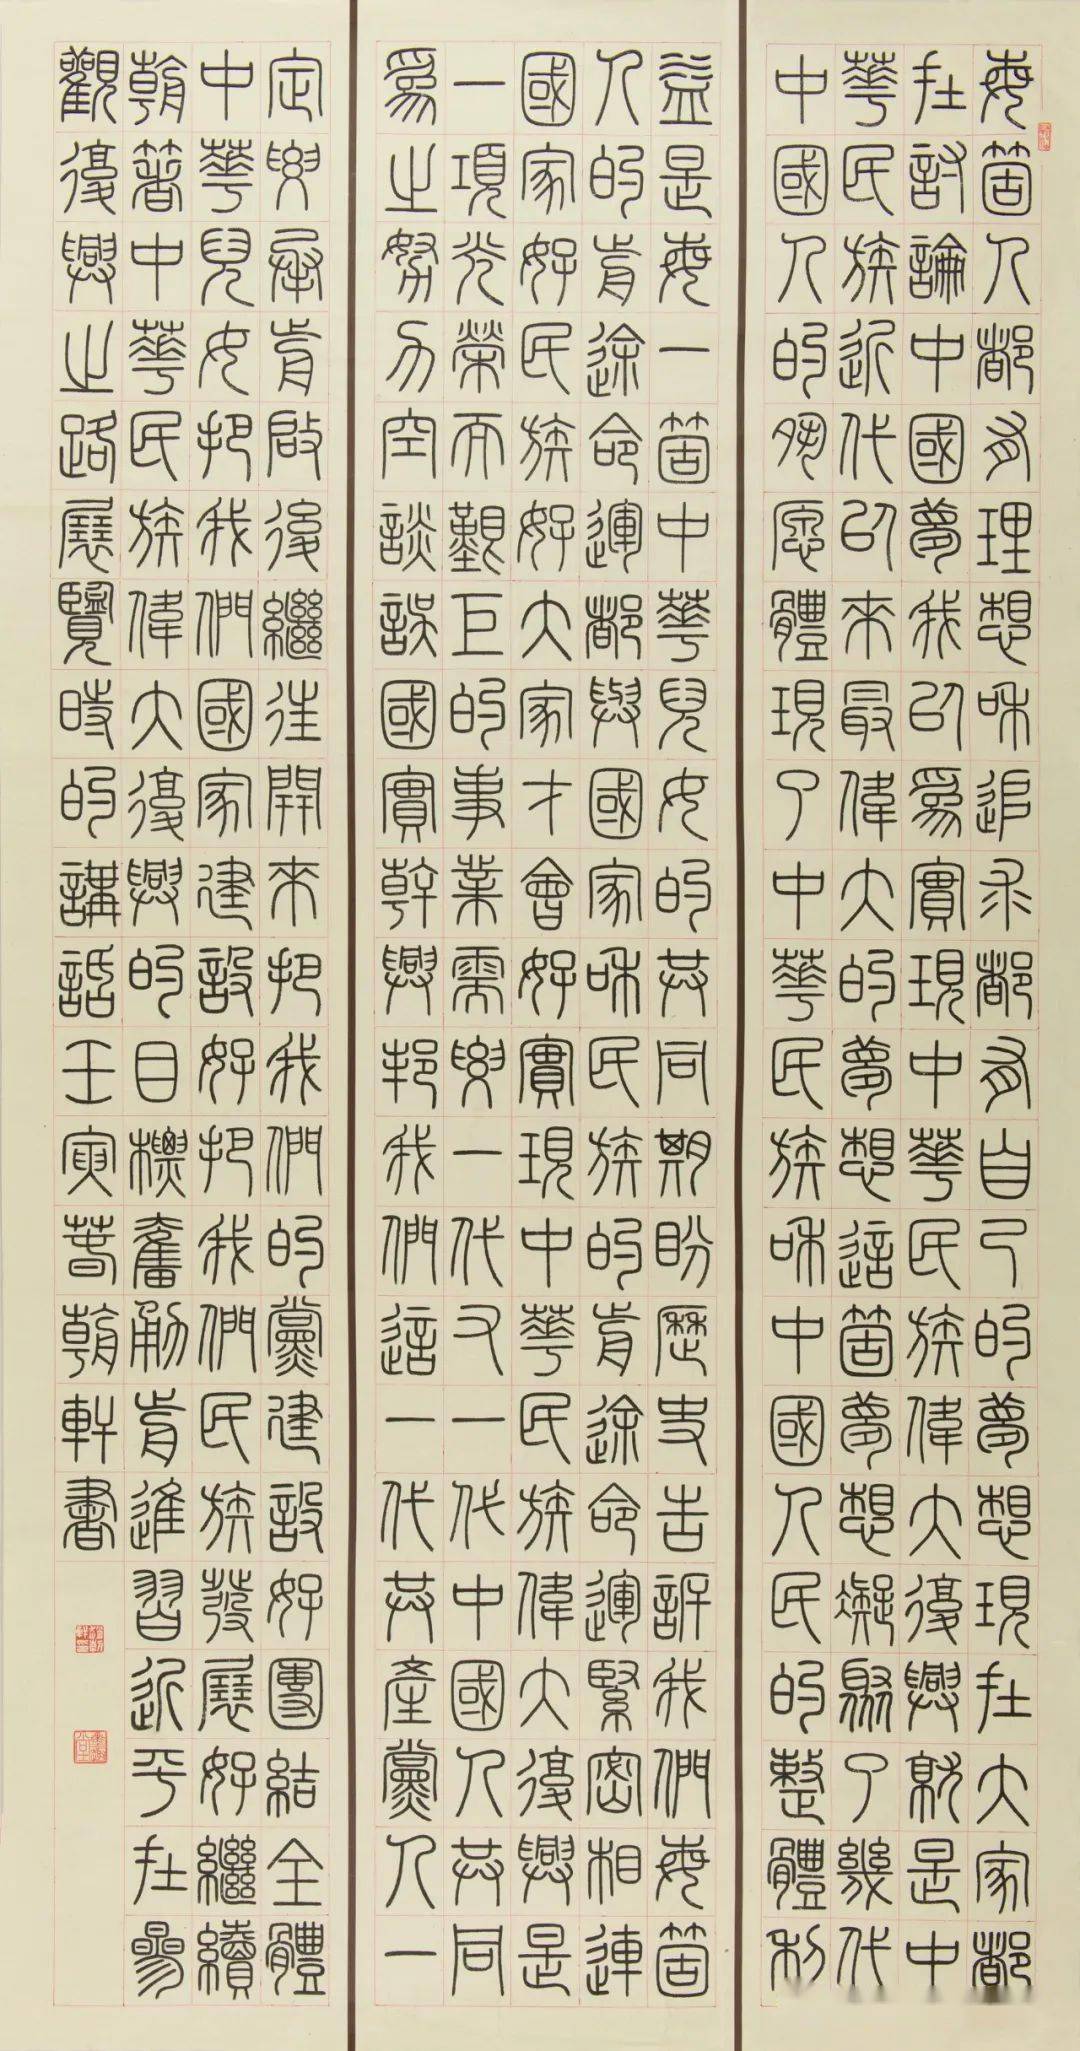 每箇人都有理想和追求都有自己的夢想現在大家都
在討論中國夢我以爲實現中華民族偉大復興就是中
華民族近代以來最偉大的夢想這箇夢想凝聚了幾代
中國人的夙願體現了中華民族和中國人民的整體利
益是每一箇中華兒女的共同期盼歷史告訴我們每箇
人的前途命運都與國家和民族的前途命運緊密相連
國家好民族好大家才會好實現中華民族偉大復興是
一項光榮而艱巨的事業需要一代又一代中國人共同
爲之努力空談誤國實幹興邦我們這一代共產黨人一
定要承前啟後繼往開來把我們的黨建設好團結全體
中華兒女把我們國家建設好把我們民族發展好繼續
朝著中華民族偉大復興的目標奮勇前進習近平在參
觀復興之路展覽時的講話壬寅春朝軒書